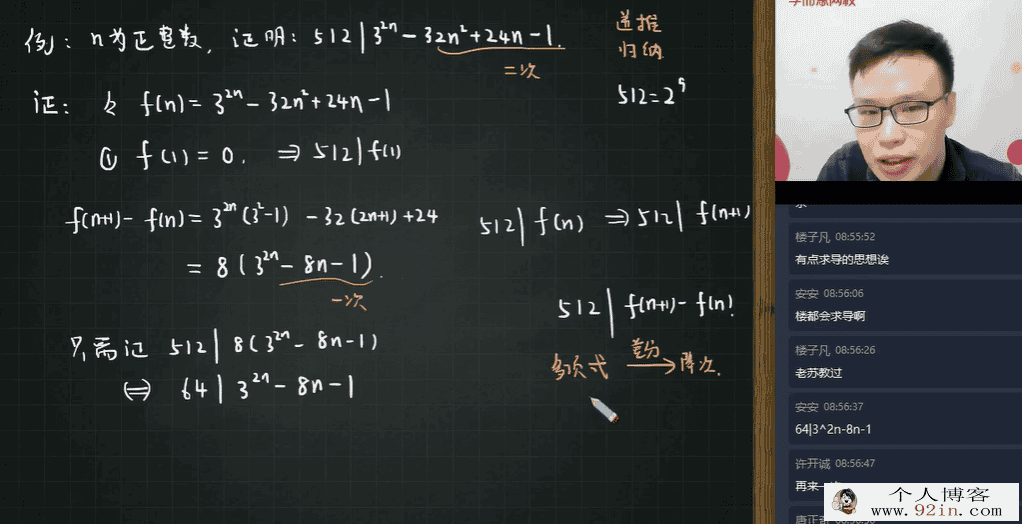 例：n为正整数，证明：512 | 3^{2n} - 32n² + 24n - 1.
二次
证：令 f(n) = 3^{2n} - 32n² + 24n - 1
① f(1) = 0. ⇒ 512 | f(1)
f(n+1) - f(n) = 3^{2n}(3²-1) - 32(2n+1) + 24
= 8(3^{2n} - 8n - 1).
一次
只需证 512 | 8(3^{2n} - 8n - 1)
⇔ 64 | 3^{2n} - 8n - 1
递推
归纳
512 = 2⁹
512 | f(n) ⇒ 512 | f(n+1)
512 | f(n+1) - f(n)!
多项式 差分→ 降次.
楼子凡 08:55:52
有点求导的思想诶
安安 08:56:06
楼都会求导啊
楼子凡 08:56:26
老苏教过
安安 08:56:37
64|3^2n-8n-1
许开诚 08:56:47
再来一
个人博客
www.92in.com